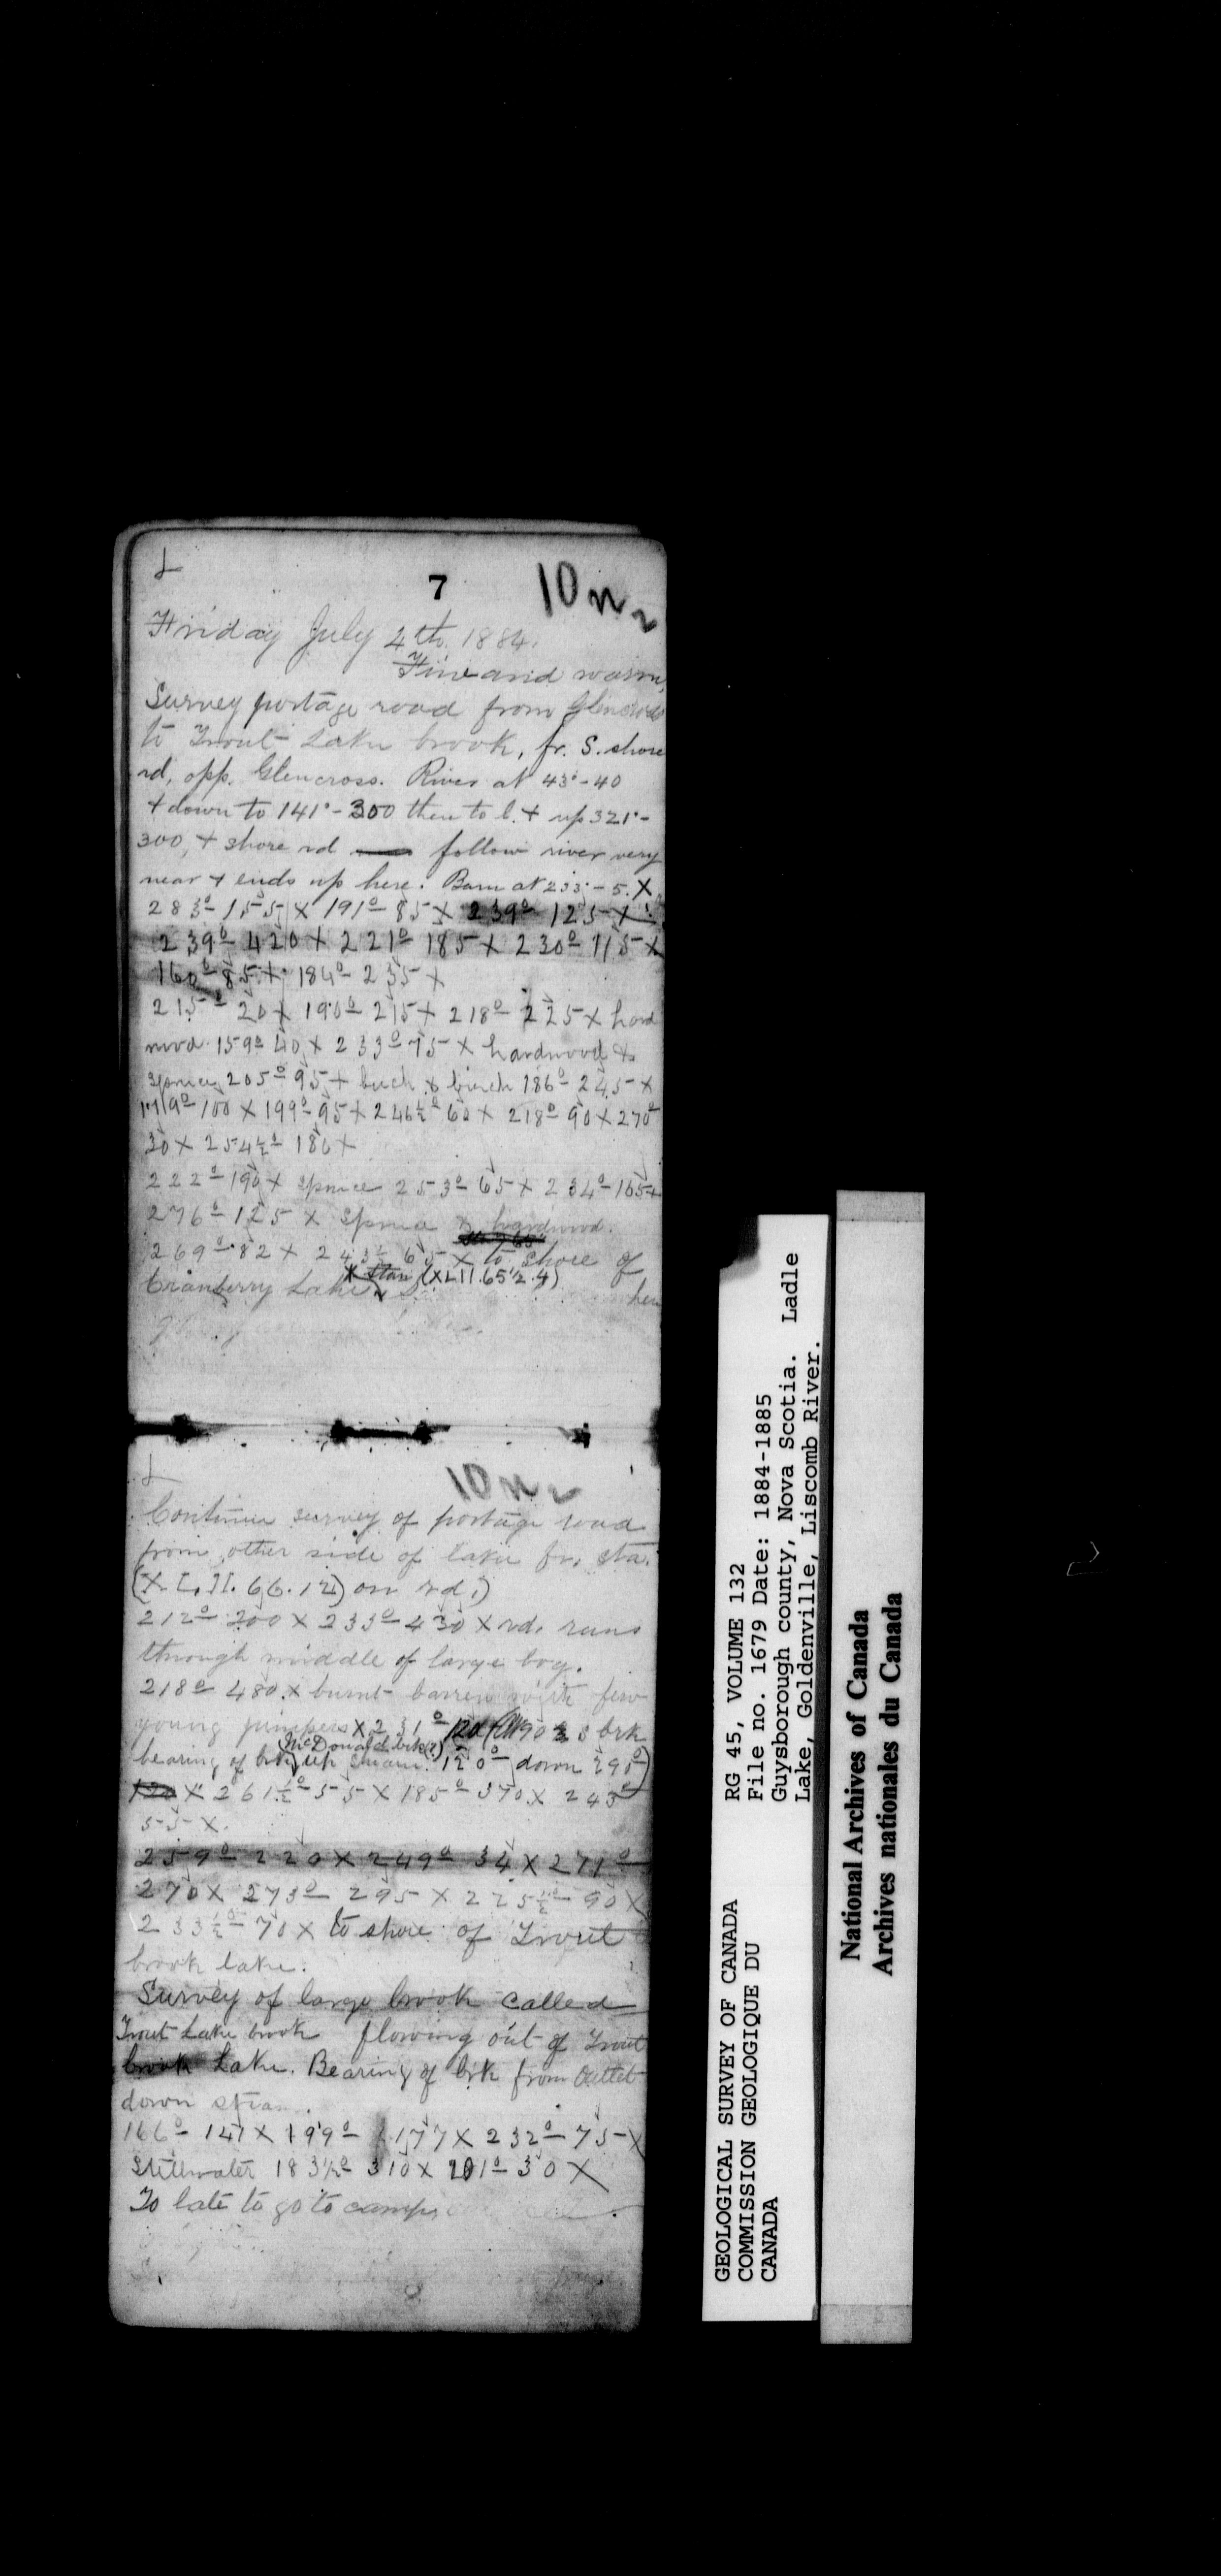 L
7
10
Friday July 4th. 1884.
Fine and warm,
Survey portage road from Glencross
to Trout Lake brook, fr. S. shore
rd, opp. Glencross. River at 43°-40
+ down to 141°-300 then to l. + up 321°-
300, + shore rd follow river very
near + ends up here. Barn at 233°-5. X
283°-155 X 191°-85 X 239°-125 X
239°-420 X 221°-185 X 230°-115 X
160°-85 X 184°-235 X
215°-20 X 190°-215 X 218°-225 X hard
wood 159°-40 X 233°-75 X hardwood &
spruce 205°-95 X beech & birch 186°-245 X
179°-100 X 199°-95 X 246½°-60 X 218°-90 X 270°
30 X 254½°-180 X
222°-190 X spruce 253°-65 X 234°-165 X
276°-125 X spruce & hardwood.
269°-82 X 243½ 65 X to shore of
Cranberry Lake (XLII.65'2.4)
L
10
Continue survey of portage road
from other side of lake fr. sta.
(X.L.II. 66.12) on rd.)
212°-200 X 233°-430 X rd. runs
through middle of large bog.
218°-480 X burnt barren with few
young junipers X 231°-120 (At 90 3 brk
(McDonald brk?)
bearing of brk up stream 120° down 295°)
120 X 261½°-55 X 185°-370 X 243°
55 X.
259°-220 X 249°-34 X 271°-
270 X 273°-295 X 225½°-90 X
233½°-70 X to shore of Trout
brook lake.
Survey of large brook called
Trout Lake brook flowing out of Trout
brook Lake. Bearing of brk from outlet
down stream.
166°-147 X 199°-177 X 232°-75 X
Stillwater 183½°-310 X 201°-30 X
To late to go to camp,
8
GEOLOGICAL SURVEY OF CANADA
COMMISSION GEOLOGIQUE DU
CANADA
RG 45, VOLUME 132
File no. 1679 Date: 1884-1885
Guysborough county, Nova Scotia. Ladle
Lake, Goldenville, Liscomb River.
National Archives of Canada
Archives nationales du Canada